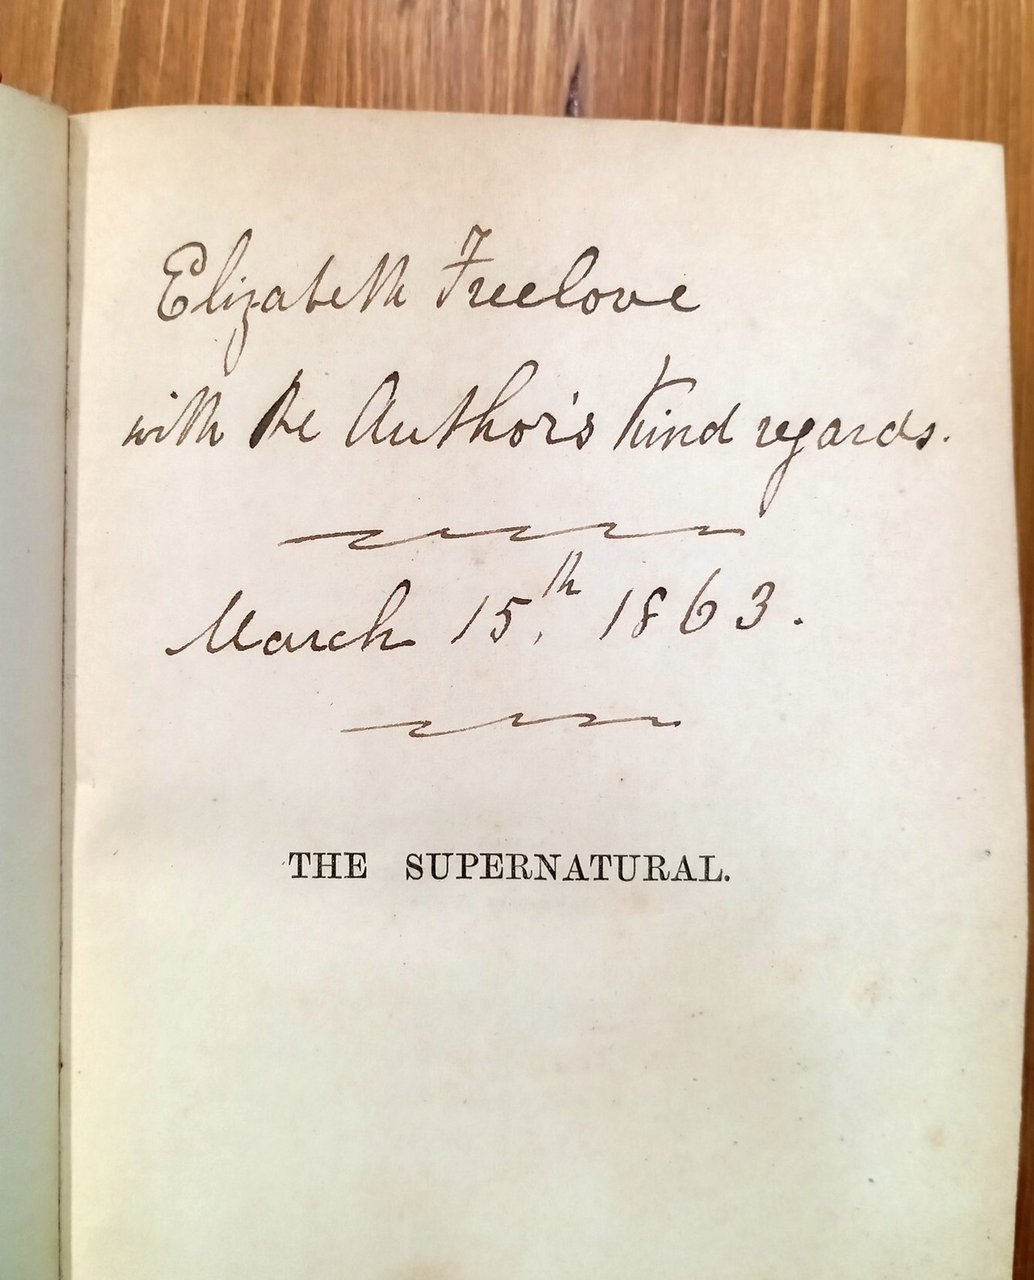 Elizabeth Freelove
with the Author's Kind regards.
March 15th, 1863.
THE SUPERNATURAL.